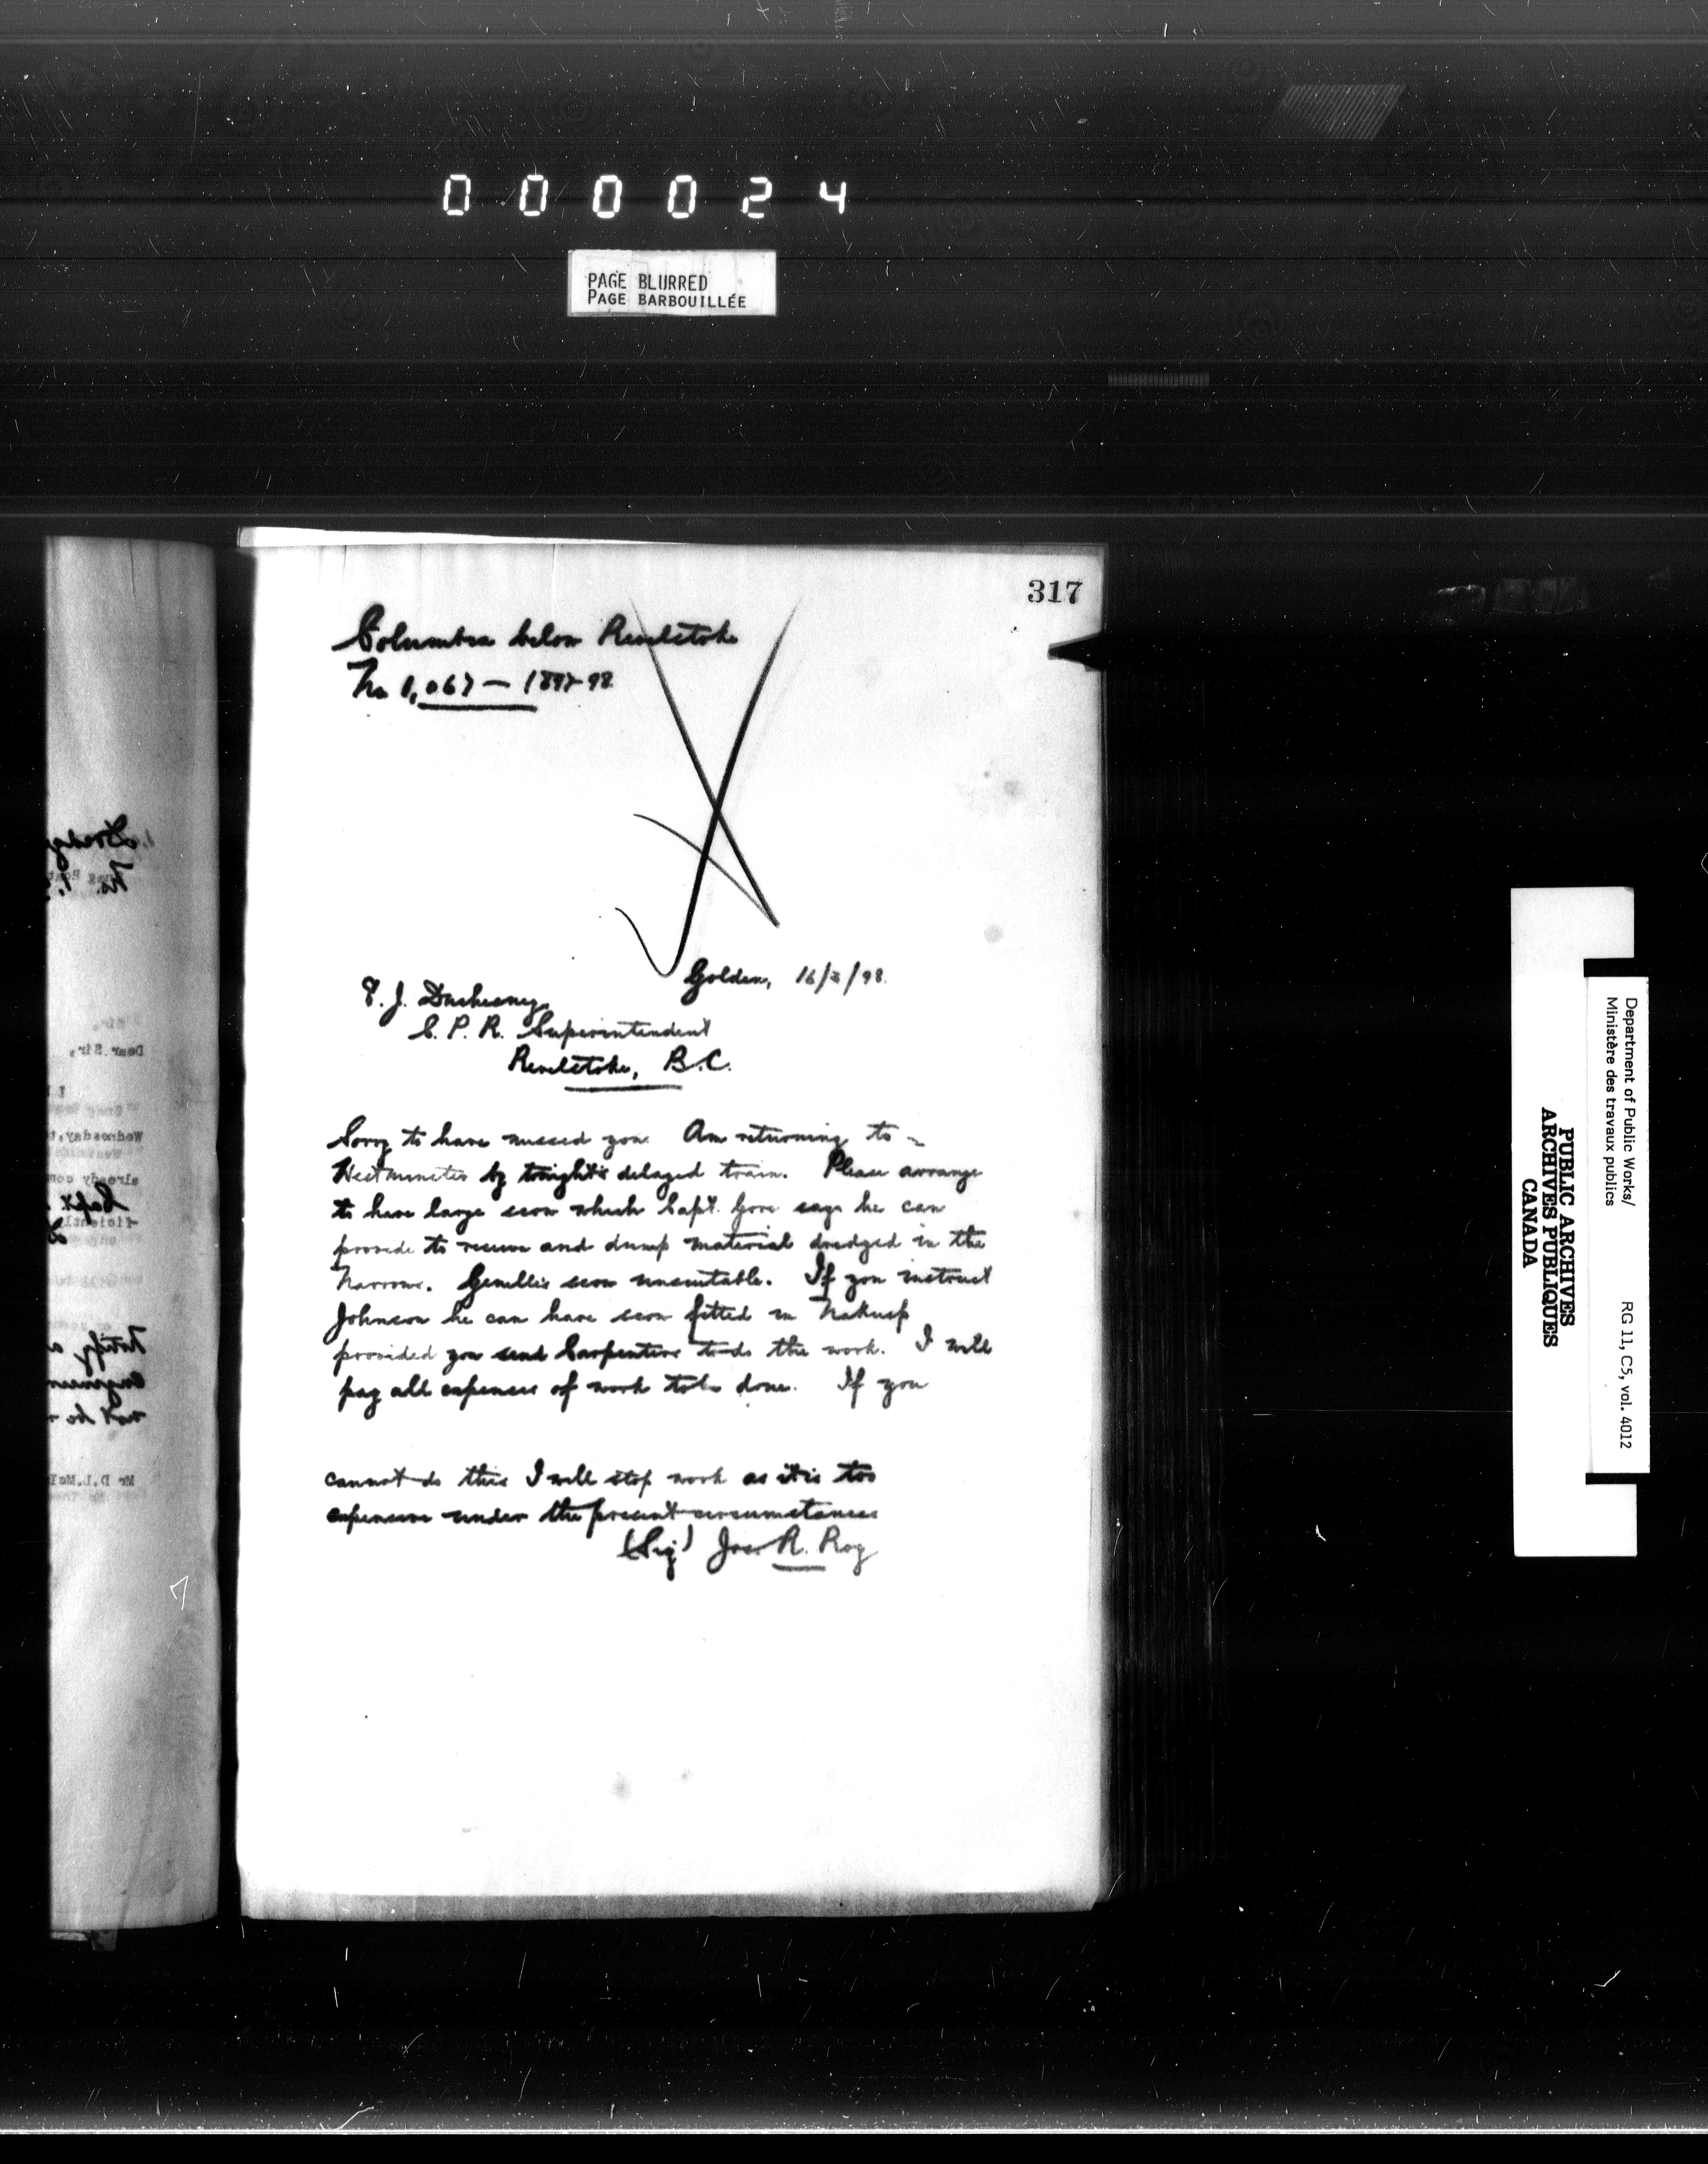 000024
PAGE BLURRED
PAGE BARBOUILLÉE
317
Columbia below Revelstoke
No 1,067 — 1897-98
Golden, 16/3/98.
T. J. Duchesnay,
C. P. R. Superintendent
Revelstoke, B.C.
Sorry to have missed you. Am returning to
Westminster by tonight's delayed train. Please arrange
to have large scow which Capt. Gore says he can
provide to receive and dump material dredged in the
Narrows. Genelle's scow unsuitable. If you instruct
Johnson he can have scow fitted in Nakusp
provided you send Carpenters to do the work. I will
pay all expenses of work to be done. If you
cannot do this I will stop work as it is too
expensive under the present circumstances
(Sig) Jos. R. Roy
Department of Public Works/
Ministère des travaux publics
RG 11, C5, vol. 4012
PUBLIC ARCHIVES
ARCHIVES PUBLIQUES
CANADA
Dear Sir,
Wednesday,
already
Capt.
Notify
not be
Mr D.L.McL